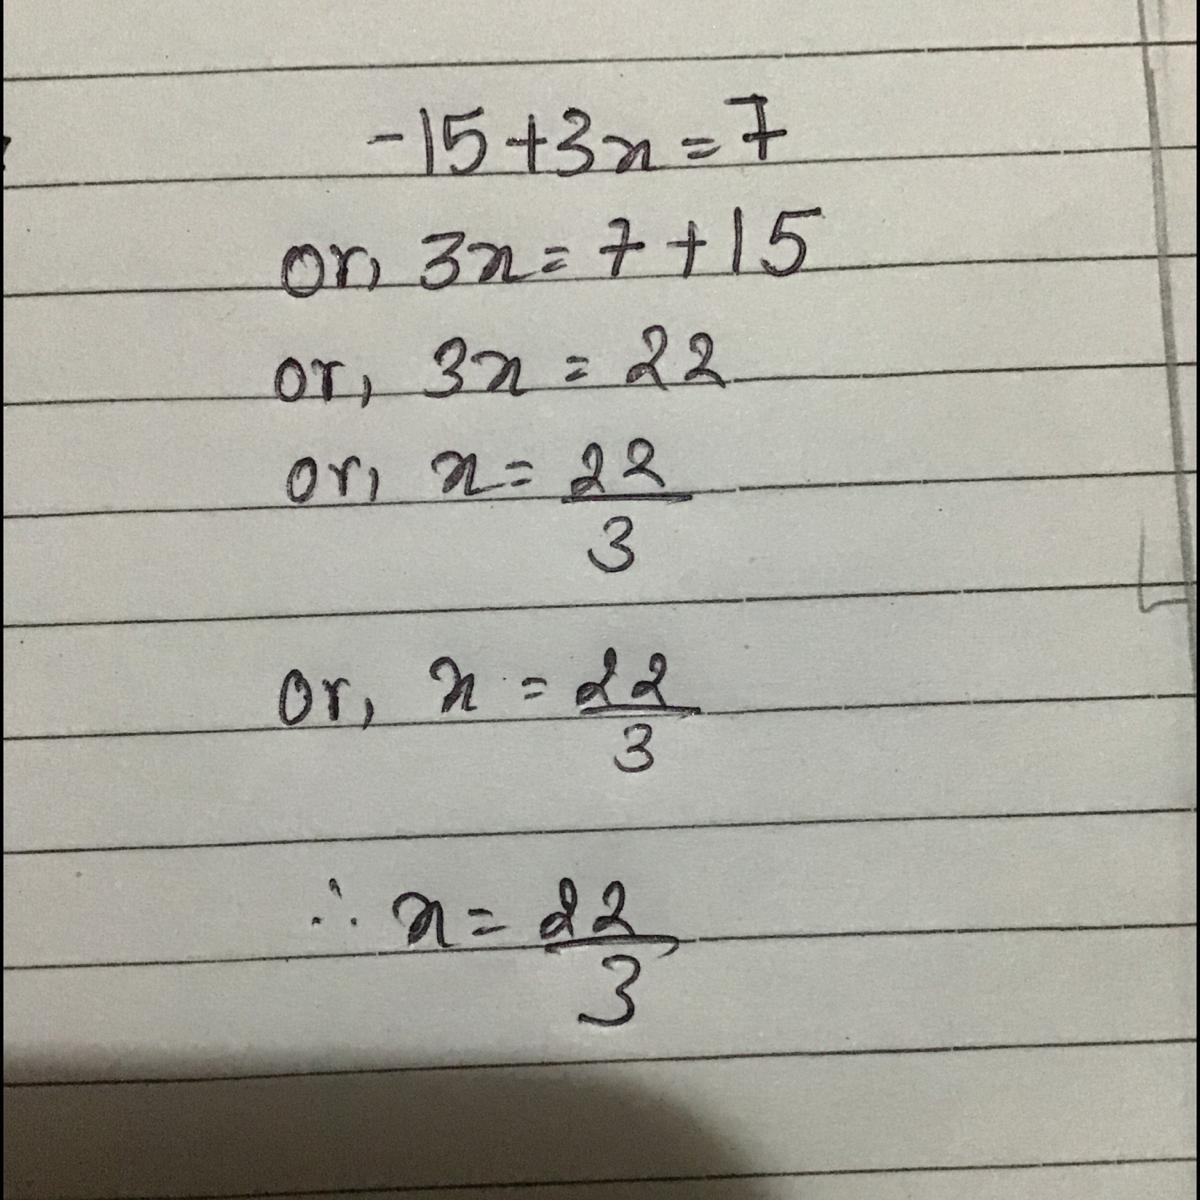 -15+3x=7
or, 3x=7+15
or, 3x=22
or, x=22/3
or, x=22/3
∴ x=22/3